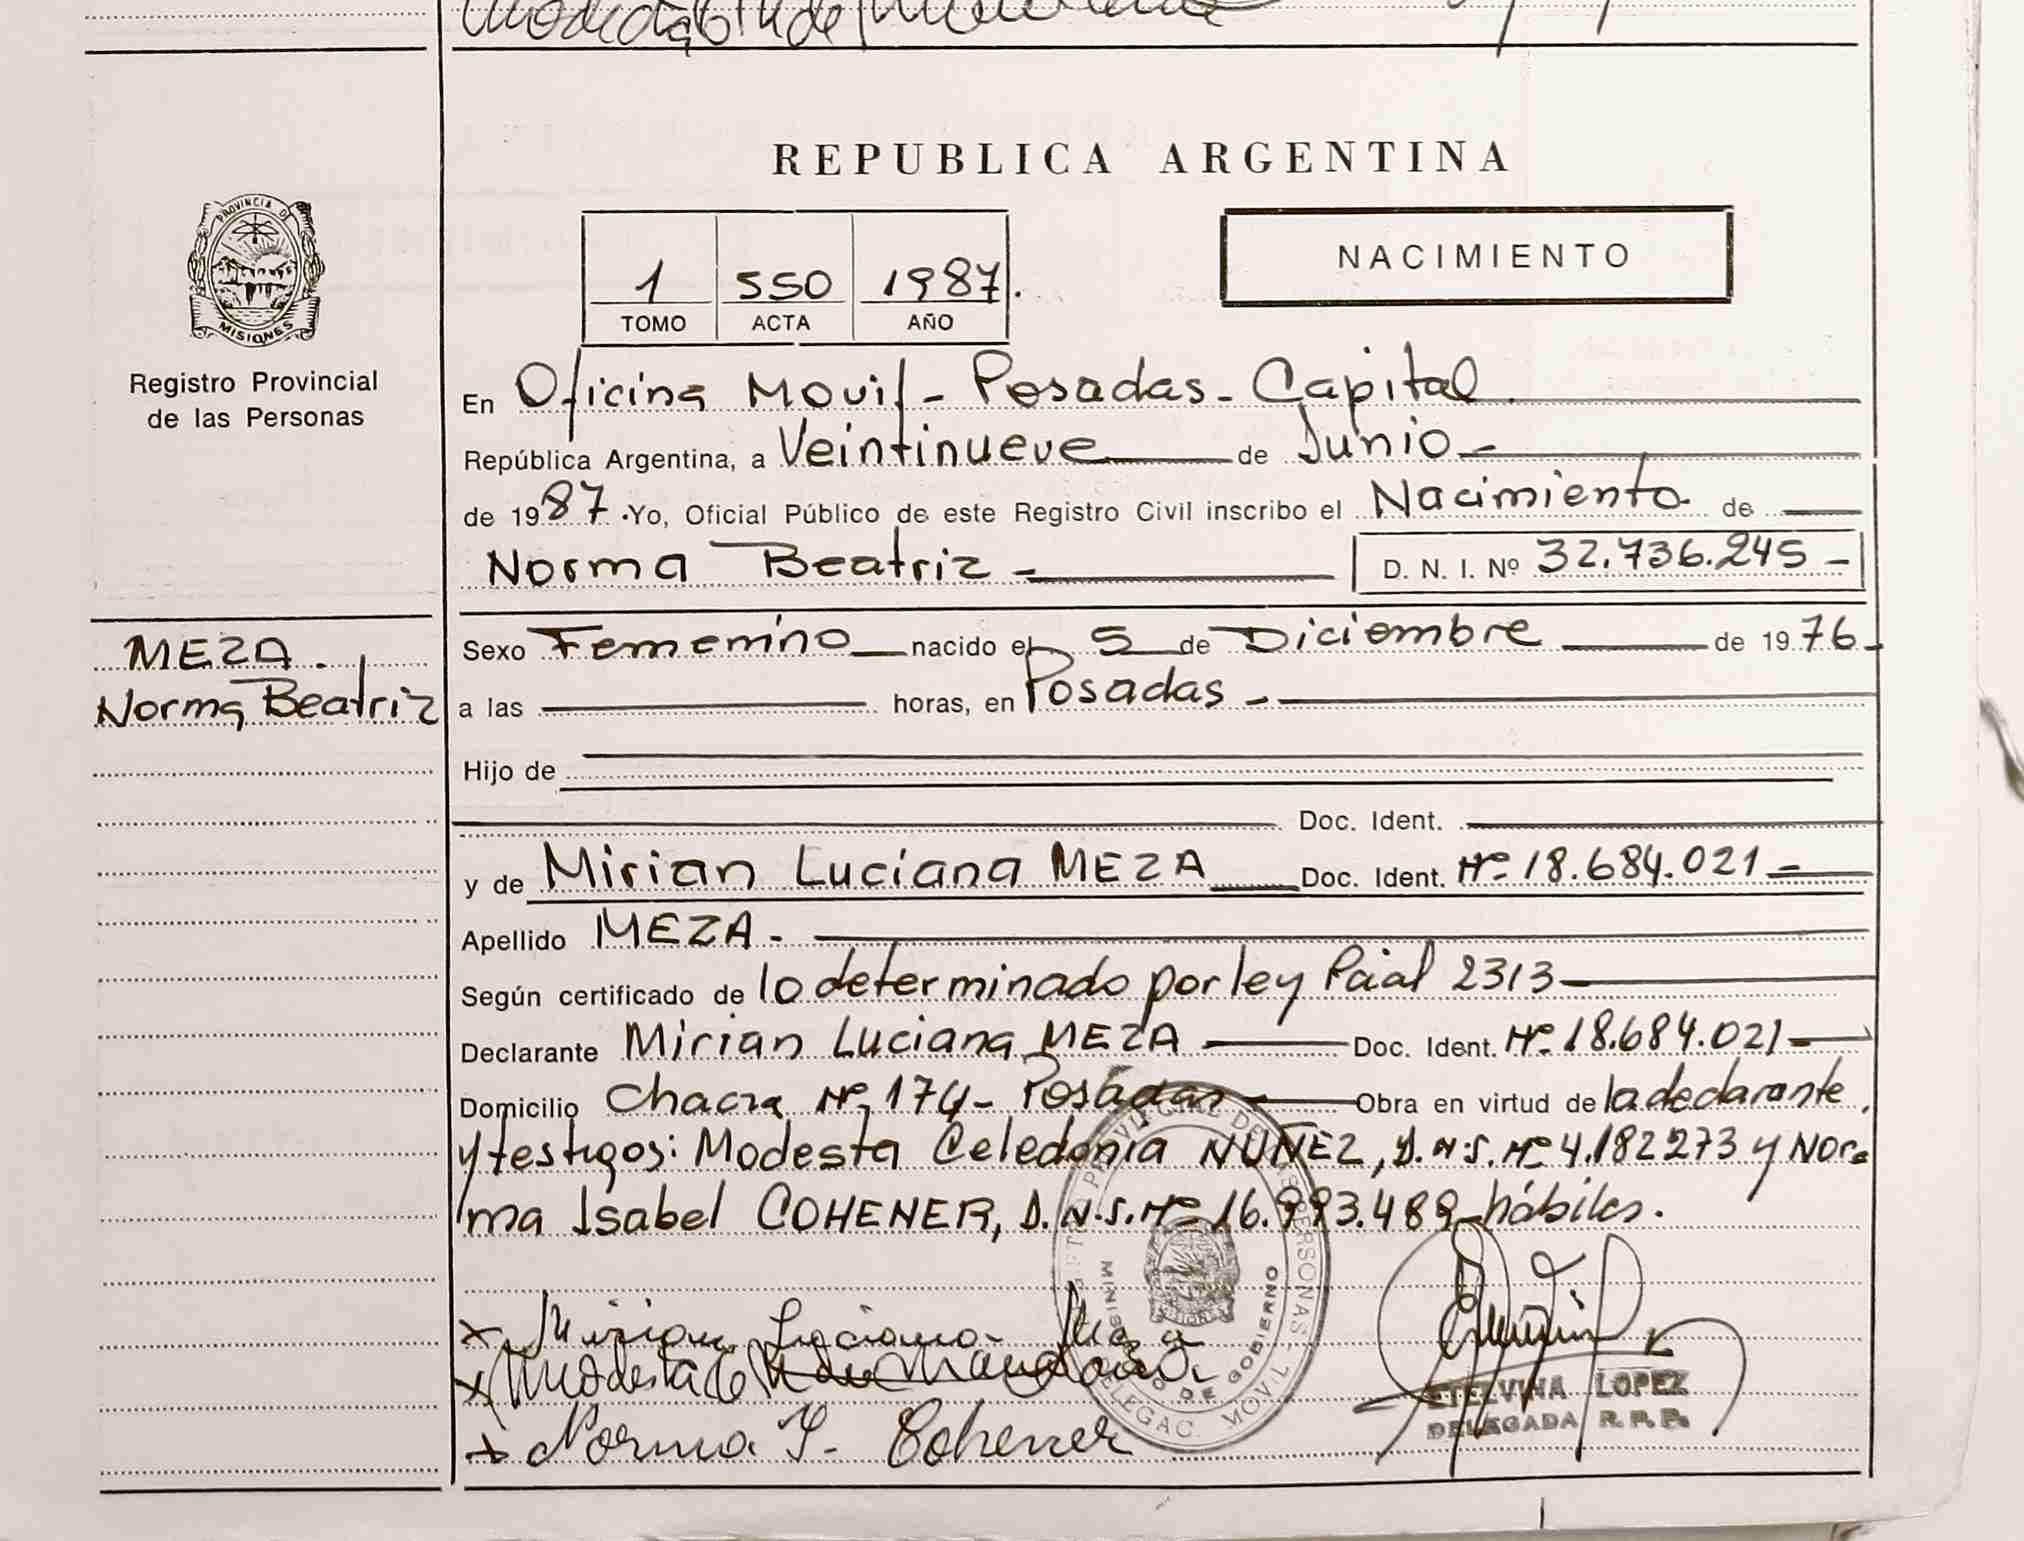 REPUBLICA ARGENTINA
PROVINCIA DE
MISIONES
Registro Provincial
de las Personas
1 550 1987.
TOMO ACTA AÑO
NACIMIENTO
En Oficina Movil - Posadas - Capital
República Argentina, a Veintinueve de Junio -
de 1987. Yo, Oficial Público de este Registro Civil inscribo el Nacimiento de
Norma Beatriz - D. N. I. Nº 32.736.245 -
MEZA.
Norma Beatriz
Sexo Femenino nacido el 5 de Diciembre de 1976
a las horas, en Posadas -
Hijo de
Doc. Ident.
y de Mirian Luciana MEZA Doc. Ident. Nº 18.684.021 -
Apellido MEZA -
Según certificado de lo determinado por ley Pcial 2313
Declarante Mirian Luciana MEZA Doc. Ident. Nº 18.684.021 -
Domicilio Chacra Nº 174 - Posadas Obra en virtud de la declarante
y testigos: Modesta Celedonia NUÑEZ, D.N.I. Nº 4.182273 y Nor-
ma Isabel COHENER, D.N.I. Nº 16.993.489 hábiles.
Mirian Luciana Meza
Modesta C
Norma I. Cohener
MINISTERIO DE GOBIERNO
DELEGAC. MOVIL
ETELVINA LOPEZ
DELEGADA R. P. P.